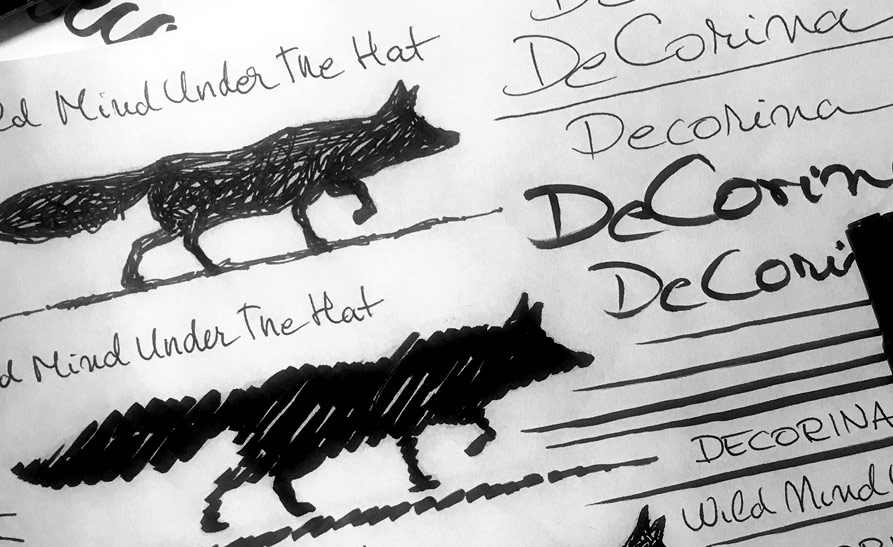 ld Mind Under The Hat
d Mind Under The Hat
DeCorina
DeCorina
Decorina
DeCorin
DeCorin
DECORINA
Wild Mind